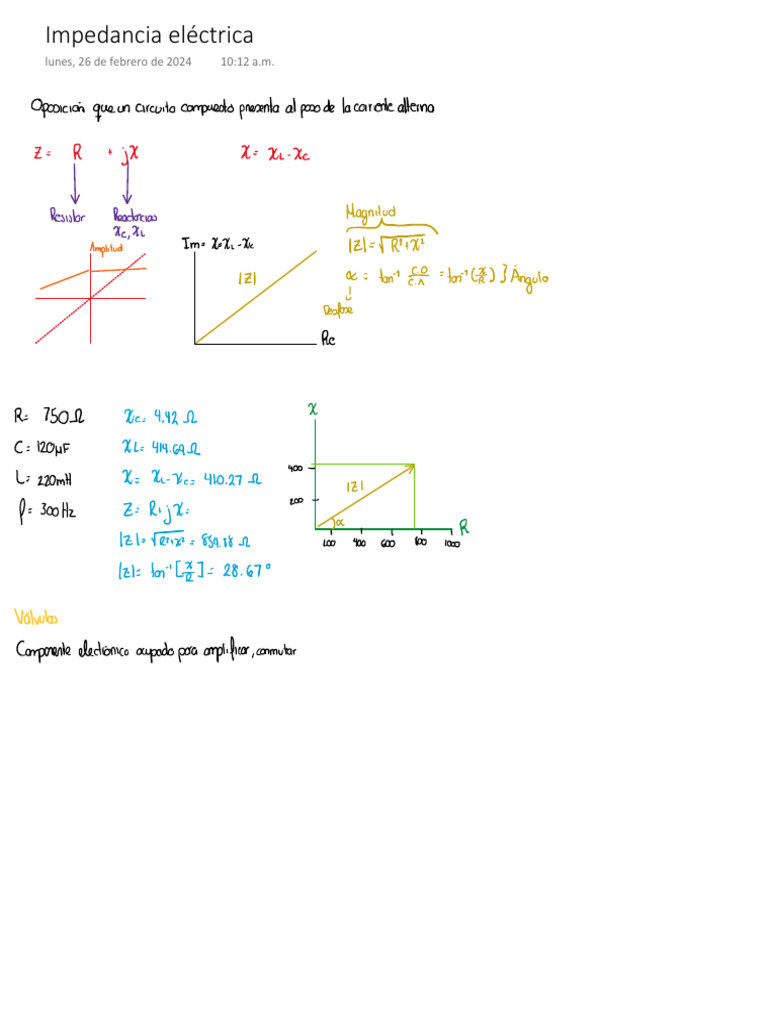 Impedancia eléctrica
lunes, 26 de febrero de 2024 10:12 a.m.
Oposición que un circuito compuesto presenta al paso de la corriente alterna
Z = R + jX
X = XL - XC
Resistor
Reactancias
XC, XL
Amplitud
Im = X = XL - XC
|Z|
Rc
Magnitud
|Z| = √R² + X²
α = tan⁻¹ C.O/C.A = tan⁻¹ (X/R) } Ángulo
Desfase
R = 750 Ω
C = 120 µF
L = 220 mH
f = 300 Hz
XC = 4.42 Ω
XL = 414.69 Ω
X = XL - XC = 410.27 Ω
Z = R + jX =
|Z| = √R² + X² = 854.88 Ω
|Z| = tan⁻¹ [X/R] = 28.67°
X
400
200
|Z|
α
R
200 400 600 800 1000
Válvulas
Componente electrónico ocupado para amplificar, conmutar